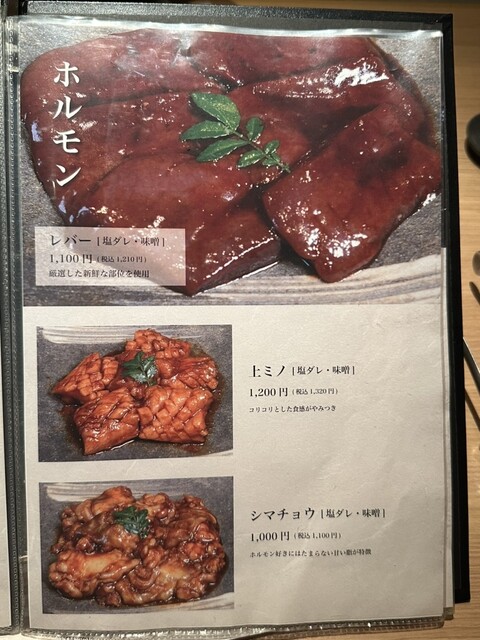 ホルモン
レバー [塩ダレ・味噌]
1,100円 (税込1,210円)
厳選した新鮮な部位を使用
上ミノ [塩ダレ・味噌]
1,200円 (税込1,320円)
コリコリとした食感がやみつき
シマチョウ [塩ダレ・味噌]
1,000円 (税込1,100円)
ホルモン好きにはたまらない甘い脂が特徴